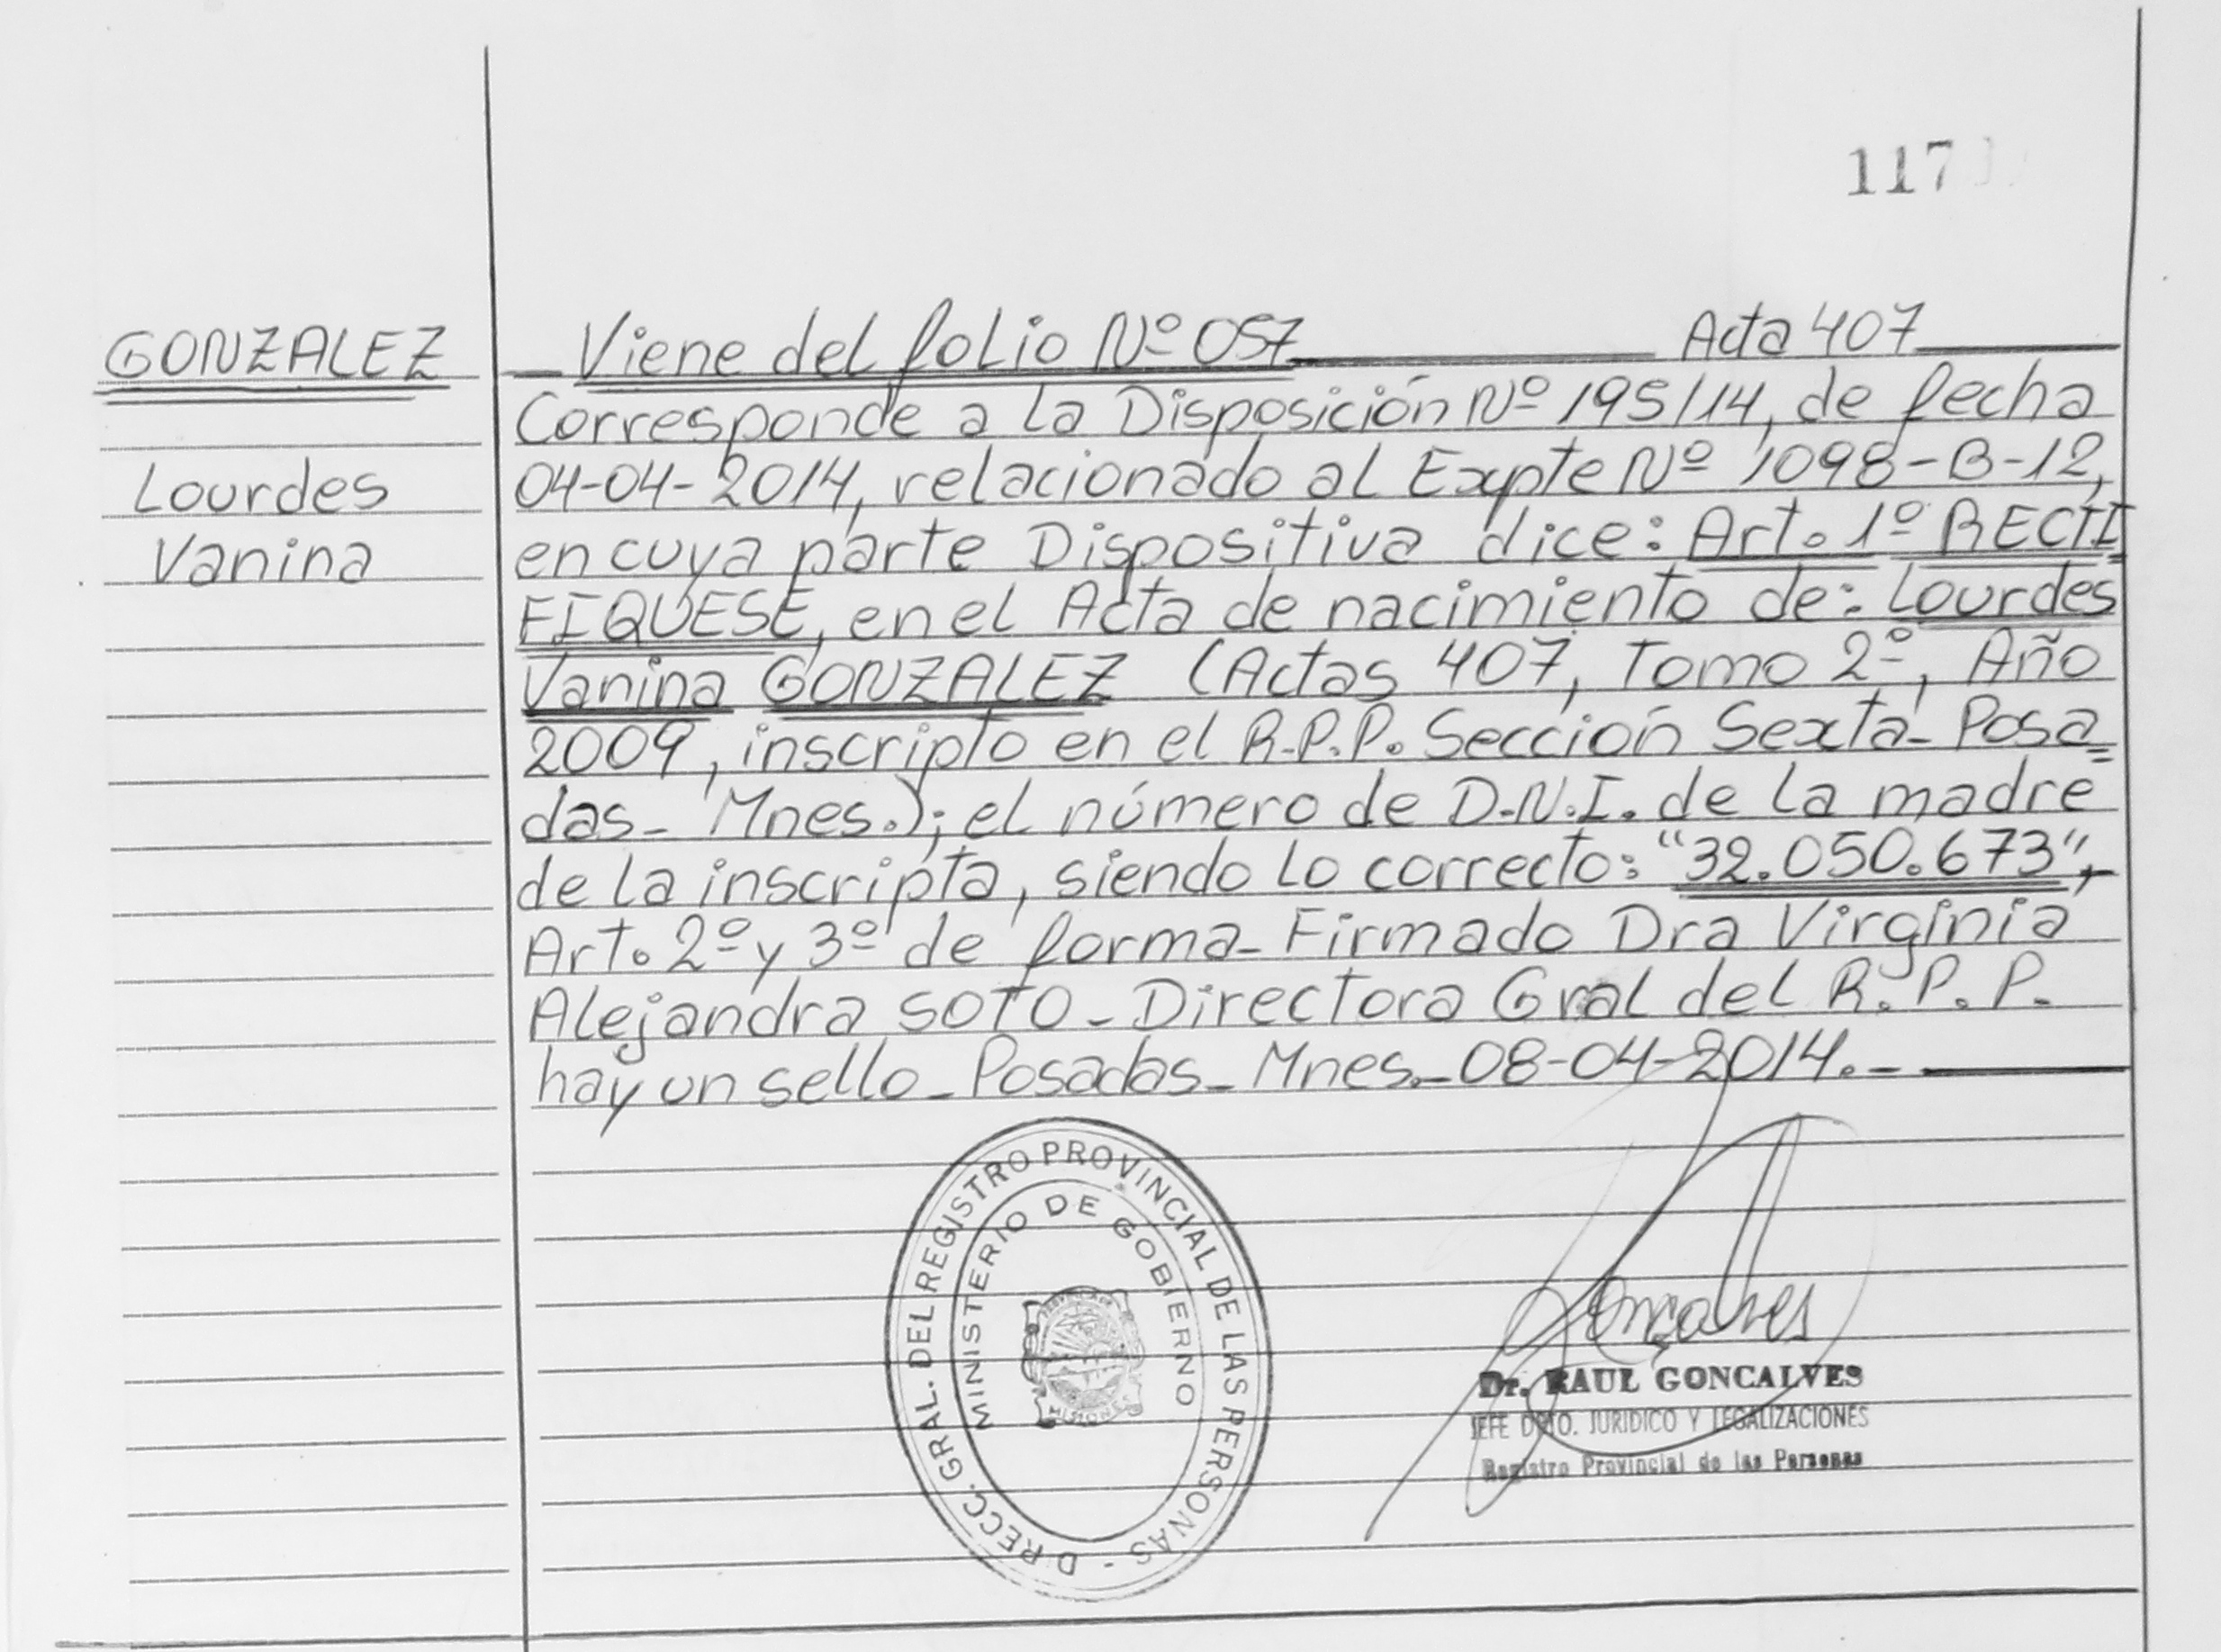 117
GONZALEZ
Lourdes
Vanina
Viene del folio Nº 057 Acta 407
Corresponde a la Disposición Nº 195/14, de fecha
04-04-2014, relacionado al Expte Nº 1098-B-12,
en cuya parte Dispositiva dice: Art. 1º RECTI
FIQUESE, en el Acta de nacimiento de: Lourdes
Vanina GONZALEZ (Actas 407, Tomo 2º, Año
2009, inscripto en el R.P.P. Sección Sexta- Posa=
das- Mnes.); el número de D.N.I. de la madre
de la inscripta, siendo lo correcto: "32.050.673",
Art. 2º y 3º de forma- Firmado Dra Virginia
Alejandra SOTO- Directora Gral del R.P.P.
hay un sello- Posadas- Mnes.- 08-04-2014.-
DIRECC. GRAL. DEL REGISTRO PROVINCIAL DE LAS PERSONAS -
MINISTERIO DE GOBIERNO
MISIONES
Gonçalves
Dr. RAUL GONCALVES
JEFE DPTO. JURIDICO Y LEGALIZACIONES
Registro Provincial de las Personas